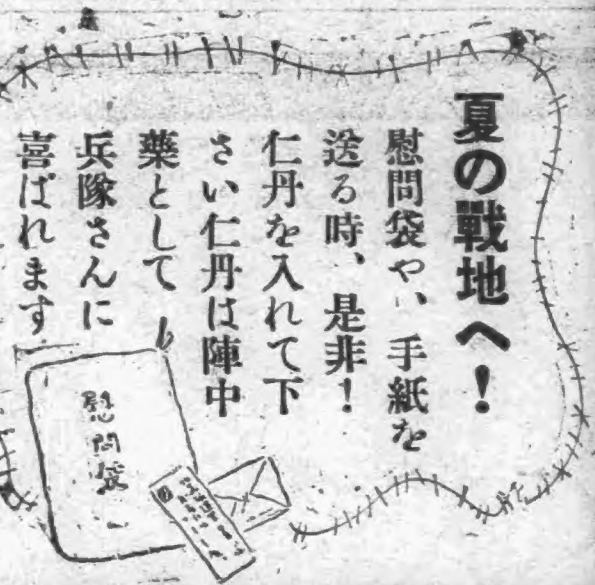 夏の戰地へ！
慰問袋や、手紙を
送る時、是非！
仁丹を入れて下
さい仁丹は陣中
藥として
兵隊さんに
喜ばれます
慰問袋